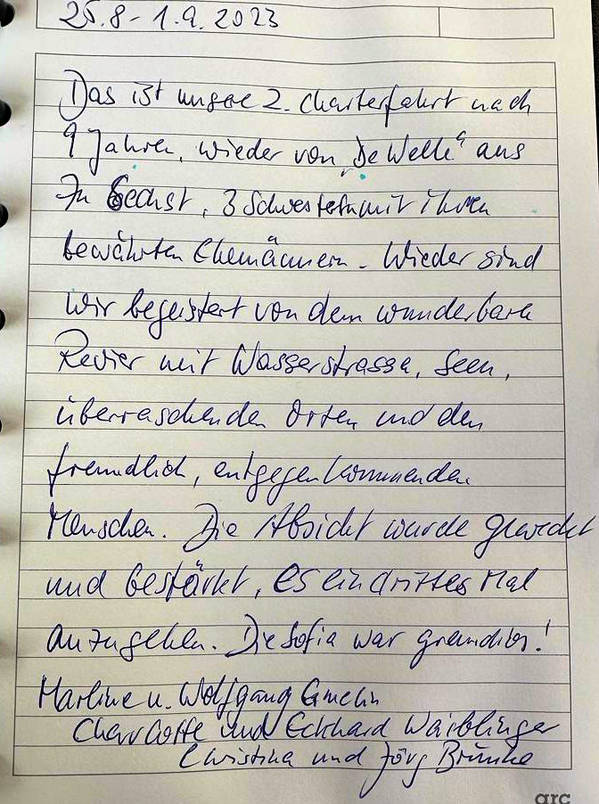 25.8 - 1.9. 2023
Das ist unsere 2. Charterfahrt nach
9 Jahren, wieder von „De Welle“ aus
Zu Sechst, 3 Schwestern mit ihren
bewährten Ehemännern. Wieder sind
wir begeistert von dem wunderbare
Revier mit Wasserstrasse, Seen,
überraschenden Orten und den
freundlich, entgegenkommenden
Menschen. Die Absicht wurde geweckt
und bestärkt, es ein drittes Mal
anzugehen. Die Sofia war grandios!
Marline u. Wolfgang Gmelin
Charlotte und Eckhard Waiblinger
Christina und Jörg Brünke
arc